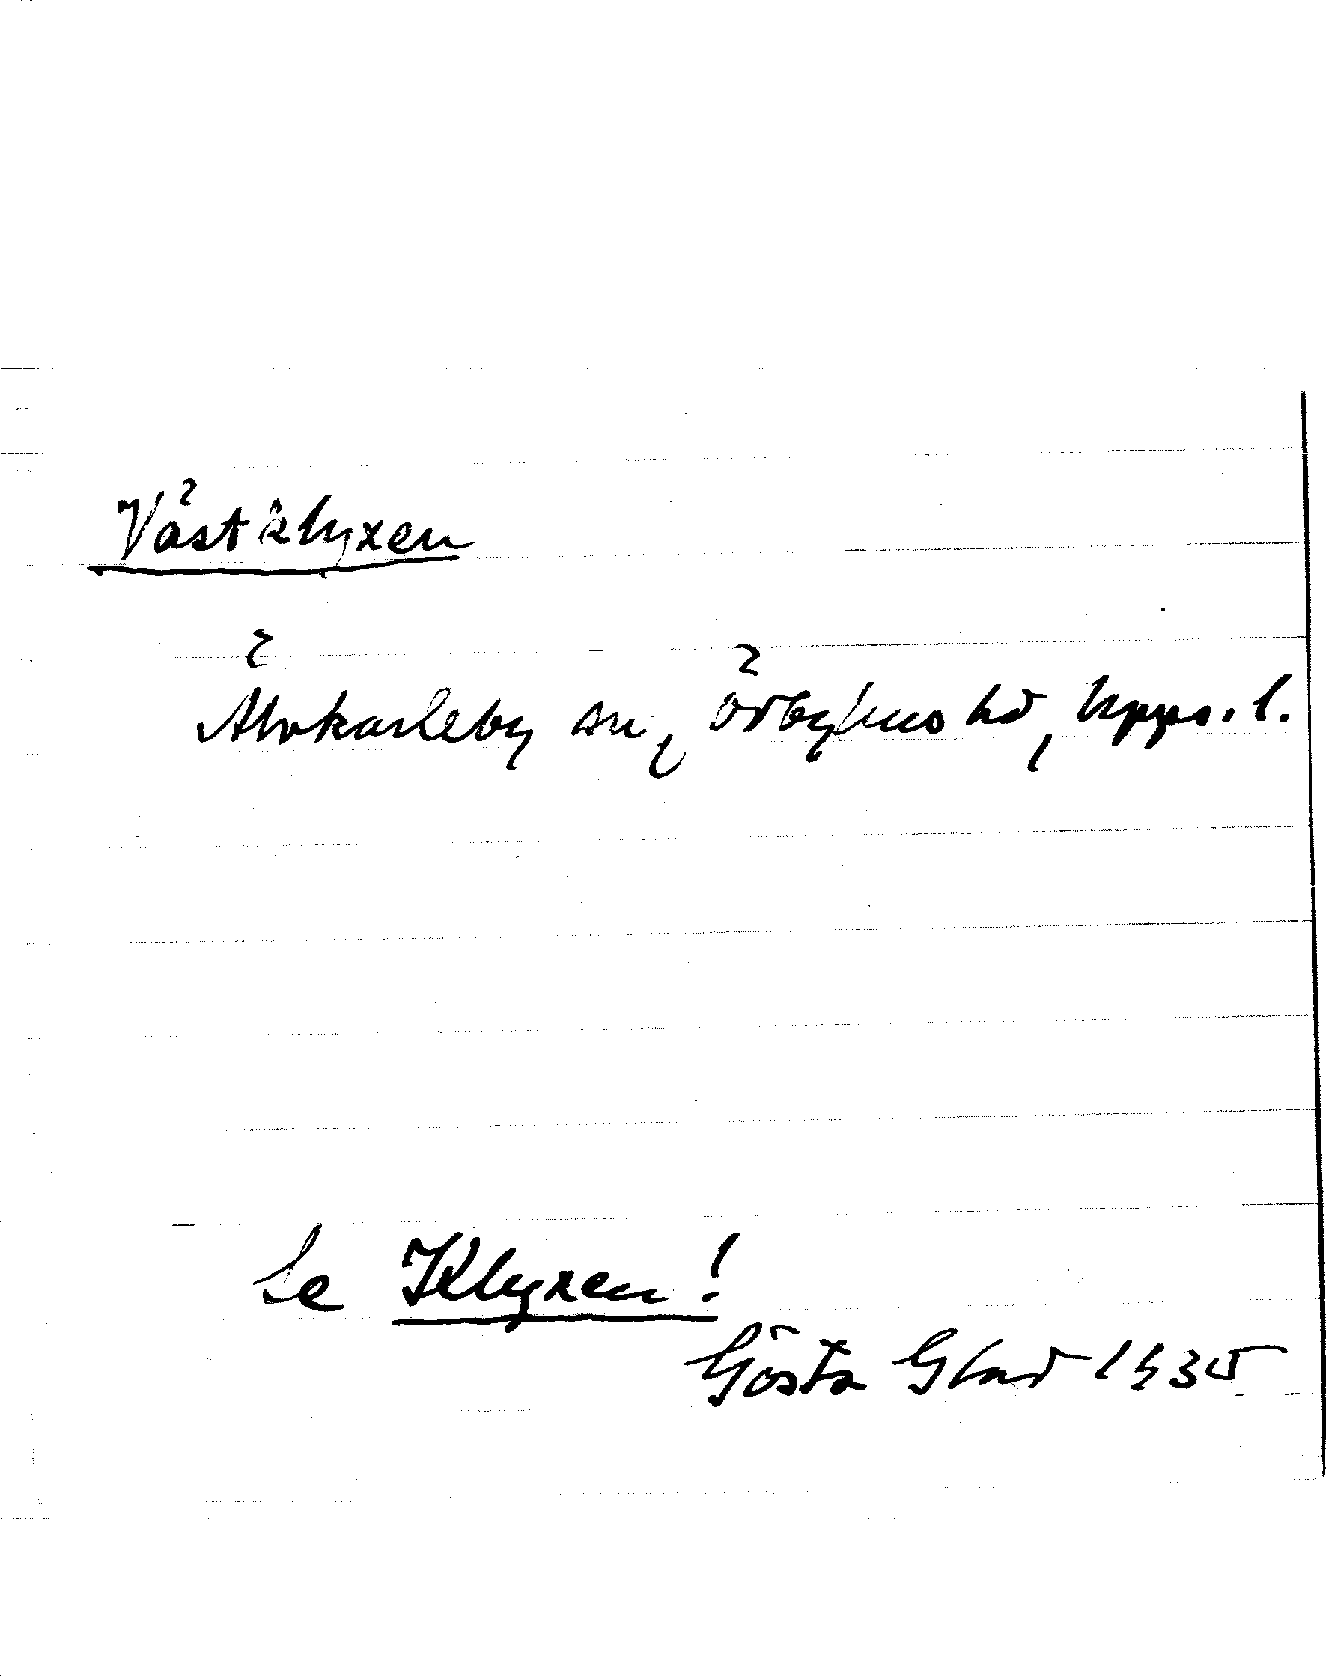 Västklyxen
Älvkarleby sn, Örbyhus hd, Upps. l.
Se Klyxen!
Gösta Glad 1935